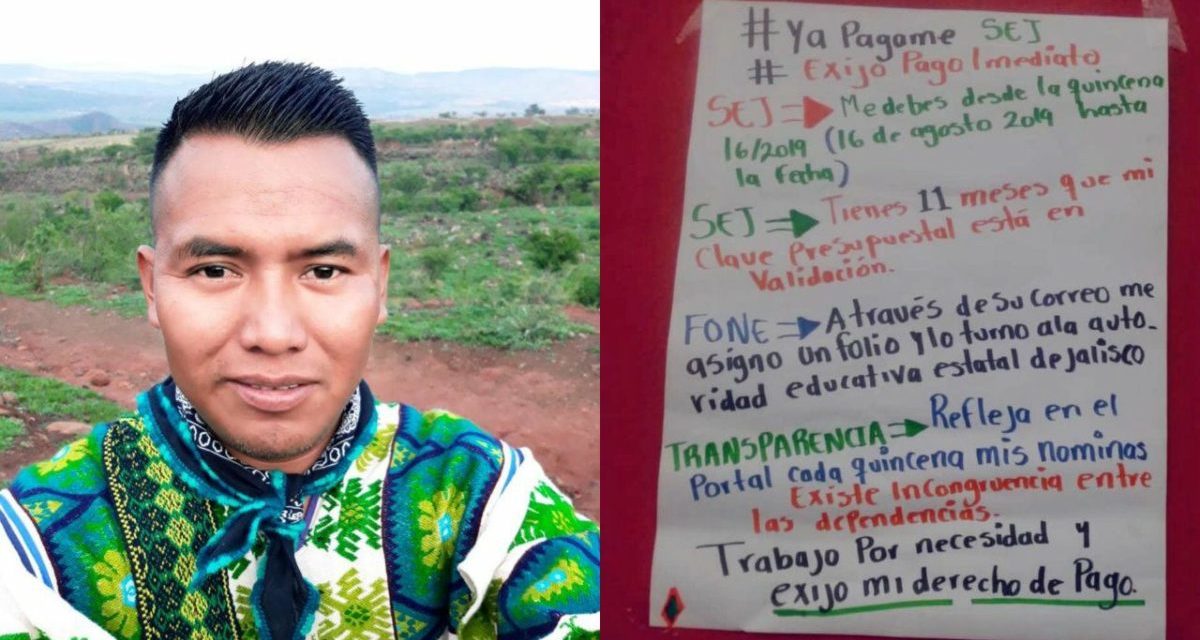 #Ya Pagame SEJ
# Exijo Pago Imediato
SEJ ⇒ Me debes desde la quincena
16/2019 (16 de agosto 2019 hasta
la fecha)
SEJ ⇒ Tienes 11 meses que mi
Clave Presupuestal está en
Validación.
FONE ⇒ A través de su correo me
asigno un folio y lo turno a la auto-
ridad educativa estatal de jalisco
TRANSPARENCIA ⇒ Refleja en el
Portal cada quincena mis Nominas
Existe Incongruencia entre
las dependencias.
Trabajo Por necesidad y
exijo mi derecho de Pago.